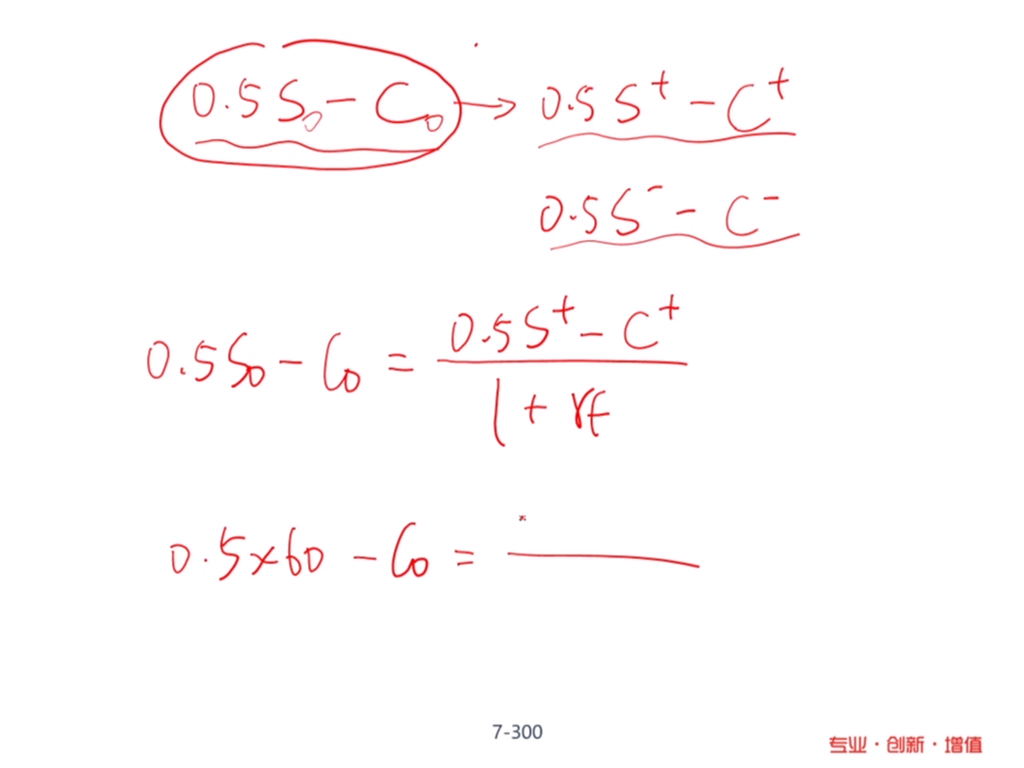 0.5S₀ - C₀ → 0.5S⁺ - C⁺
0.5S⁻ - C⁻
0.5S₀ - C₀ = (0.5S⁺ - C⁺) / (1 + rf)
0.5×60 - C₀ =
7-300
专业·创新·增值